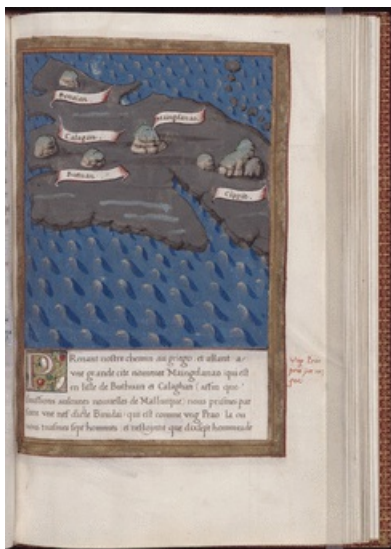 Benaian
Maingdanao
Calaghan
Butuan
Cippit.
PRenant nostre chemin au griego et allant a
vne grande cite nommee Maingdanao qui est
en lisle de Buthuan et Calaghan (affin que
seussions aulcunes nouvelles de Malucque) nous prismes par
force vne nef dicte Binidai qui est comme vng Prao la ou
nous trasmes sept hommes et nestoient que dixsept hommes de
vng